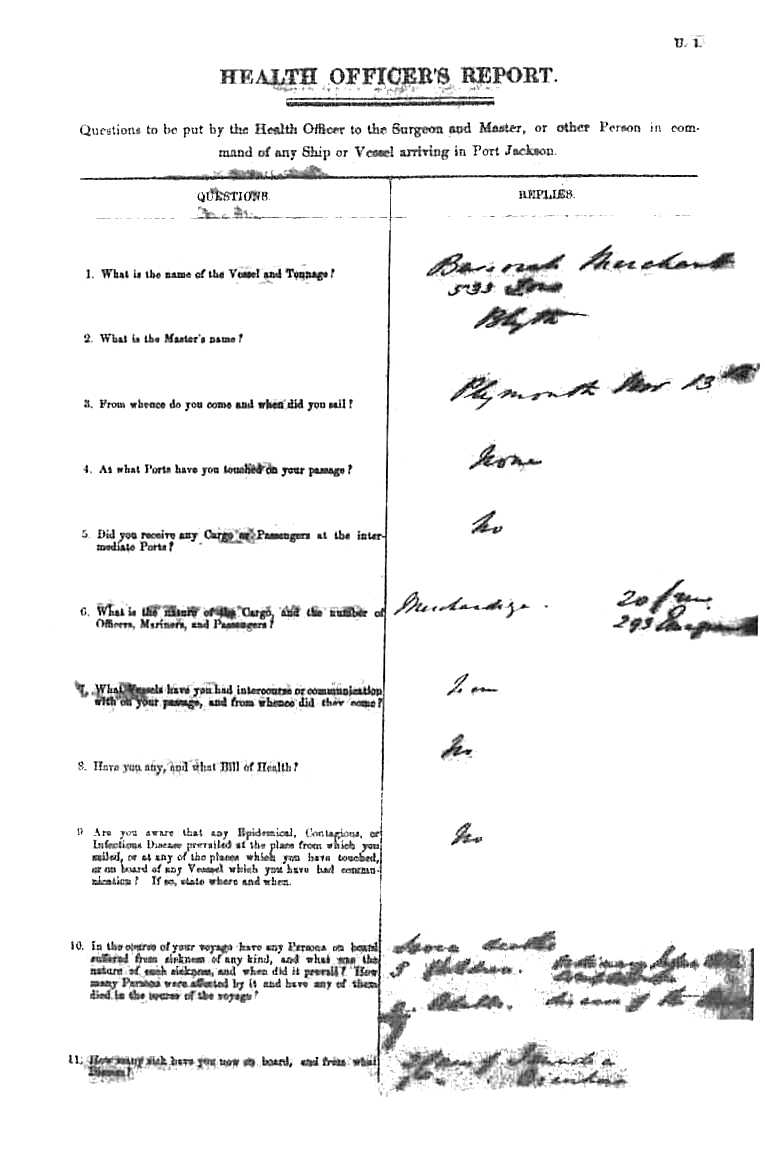 U. 1.
HEALTH OFFICER'S REPORT.
Questions to be put by the Health Officer to the Surgeon and Master, or other Person in com-
mand of any Ship or Vessel arriving in Port Jackson.
QUESTIONS.
REPLIES.
1. What is the name of the Vessel and Tonnage?
Merchant
535 Tons
2. What is the Master's name?
Blyth
3. From whence do you come and when did you sail?
Plymouth Nov 13th
4. At what Ports have you touched on your passage?
None
5. Did you receive any Cargo or Passengers at the inter-
mediate Ports?
No
6. What is the nature of the Cargo, and the number of
Officers, Mariners, and Passengers?
Merchandize. 20
293
7. What Vessels have you had intercourse or communication
with on your passage, and from whence did they come?
8. Have you any, and what Bill of Health?
No
9. Are you aware that any Epidemical, Contagious, or
Infectious Disease prevailed at the place from which you
sailed, or at any of the places which you have touched,
or on board of any Vessel which you have had commu-
nication? If so, state where and when.
No
10. In the course of your voyage have any Persons on board
suffered from sickness of any kind, and what was the
nature of such sickness, and when did it prevail? How
many Persons were affected by it and have any of them
died in the course of the voyage?
Seven deaths
5 Children.
2 Adults. disease of the
11. How many sick have you now on board, and from what
Disease?